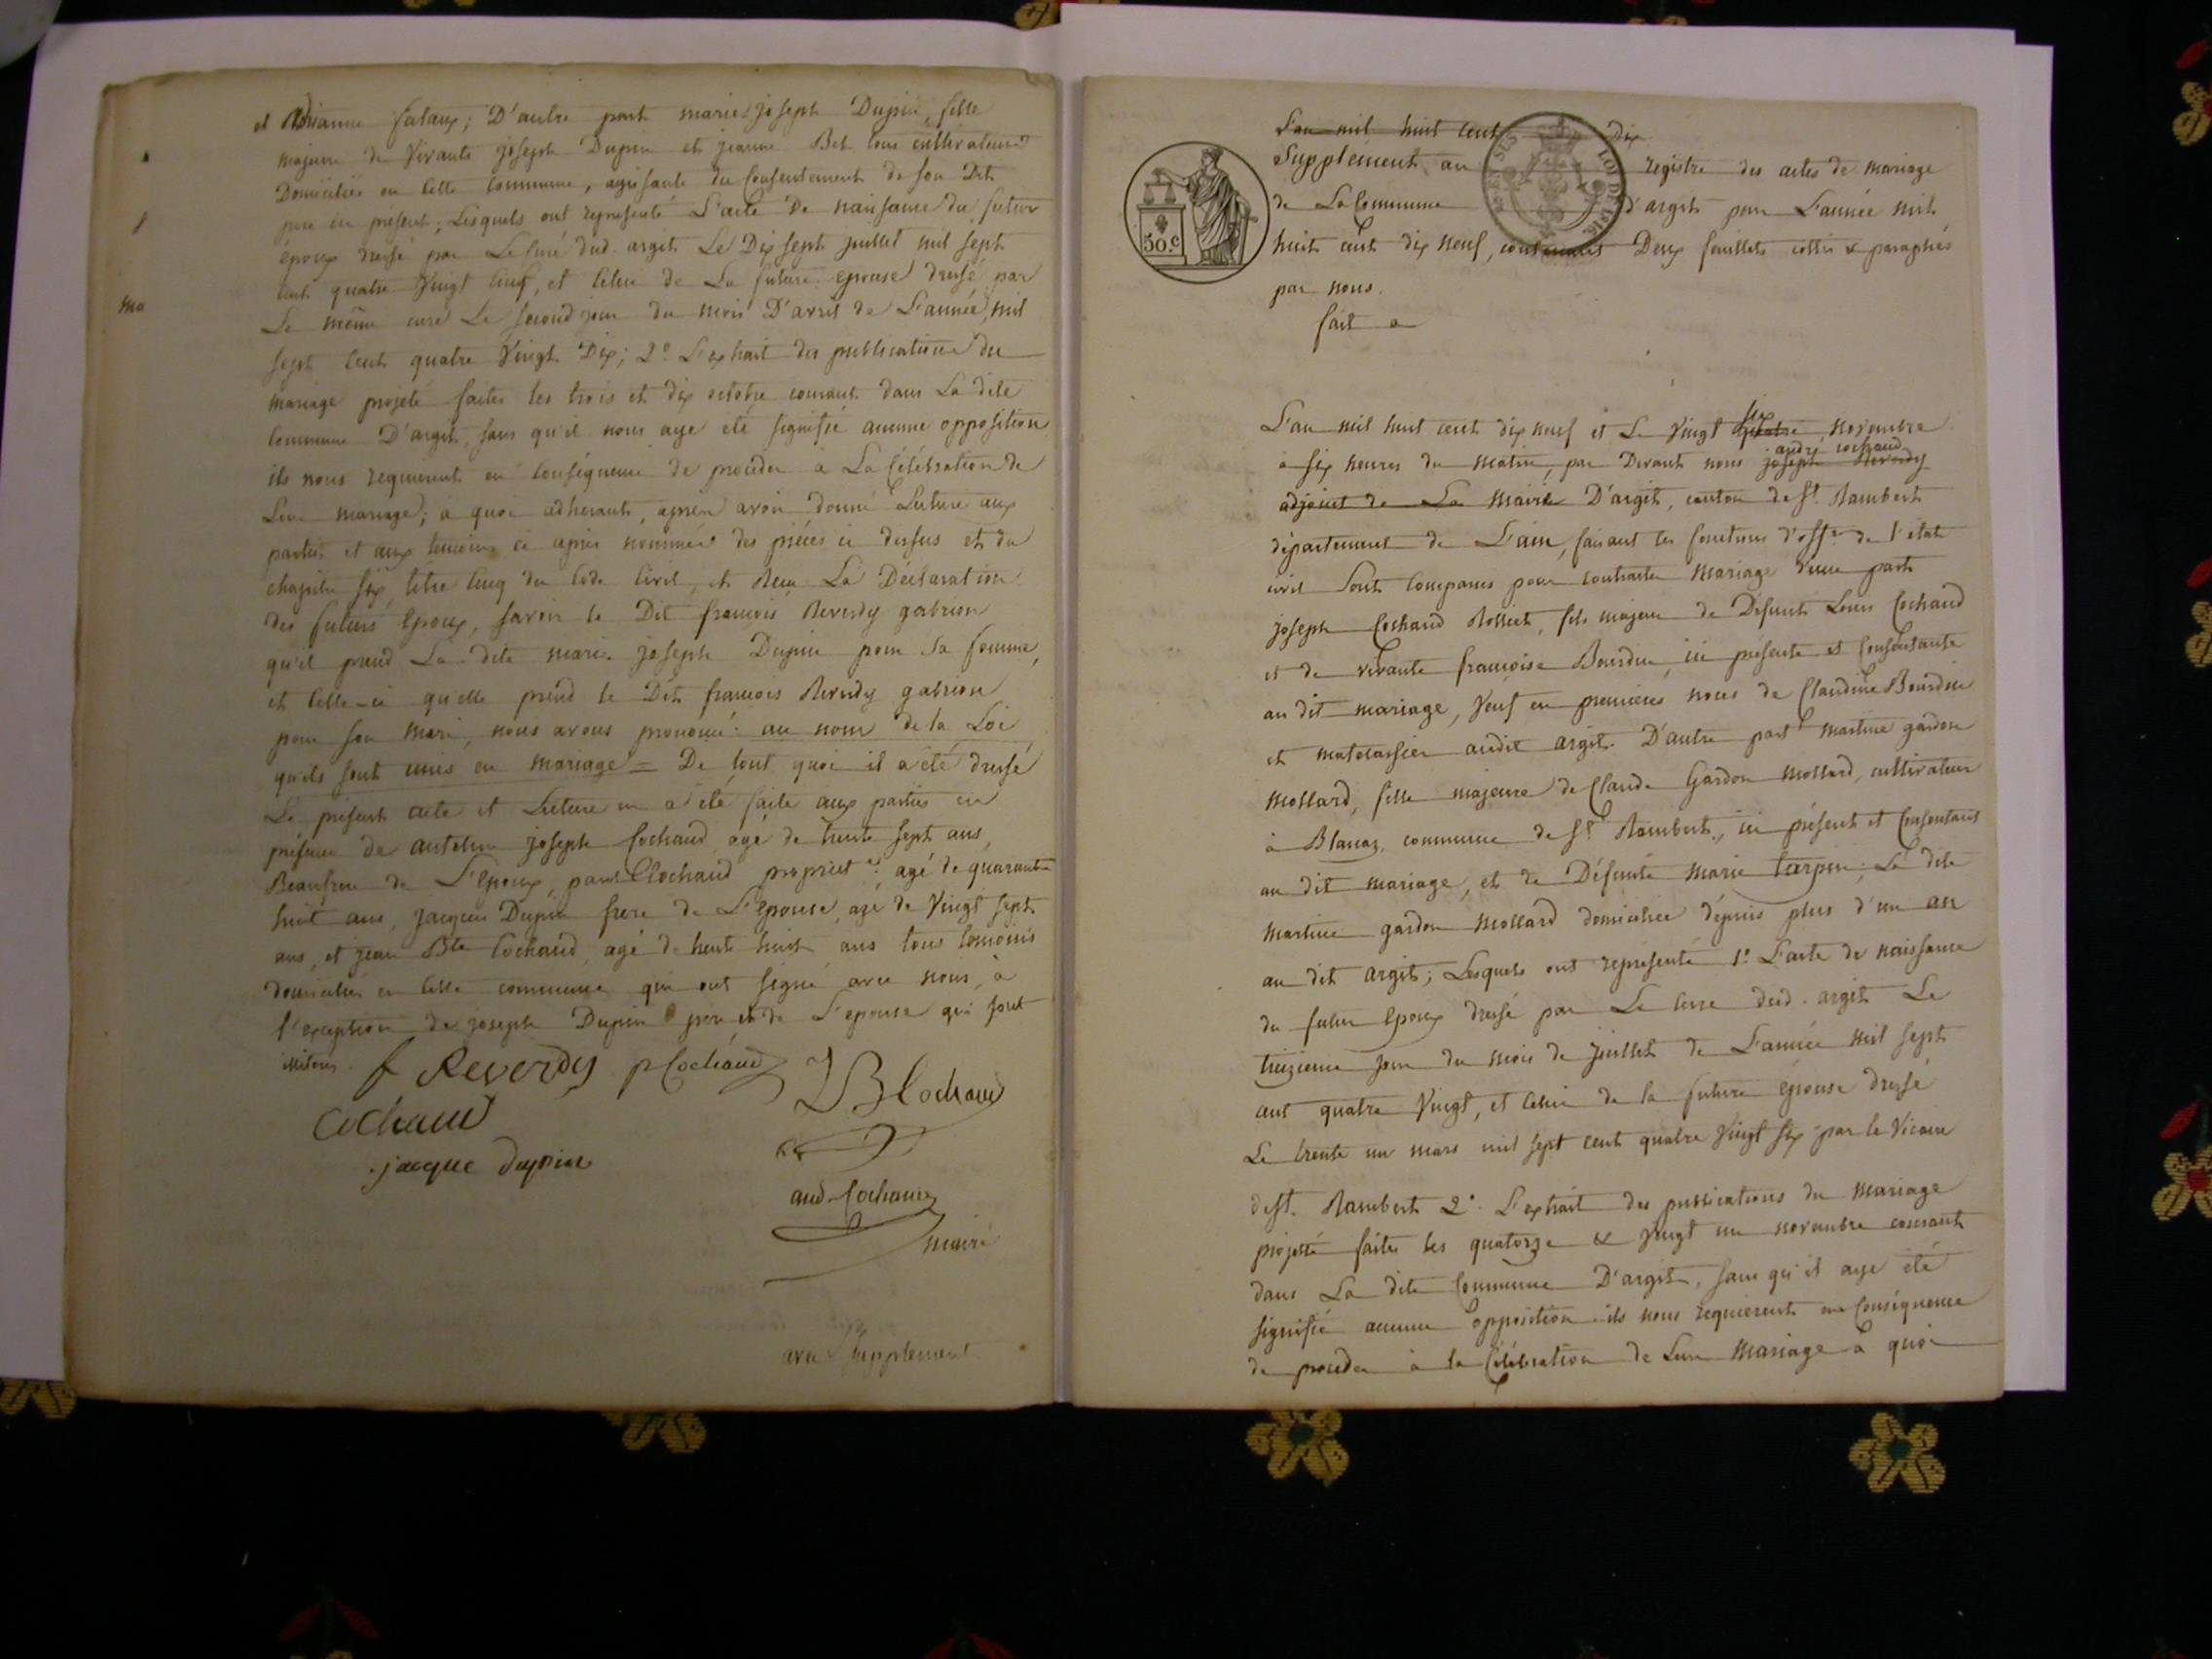 et Adrianne fataux; D'autre part marie joseph Dupin, fille
majeure de Vivants joseph Dupin et jeanne Bet tous cultivateurs
Domiciliés en cette Commune, agissante du Consentement de son Dit
père ici présent; Lesquels ont représenté L'acte De naissance du futur
époux dressé par Le Curé dud. argit Le Dix sept juillet mil sept
cent quatre Vingt neuf, et Celui de La future epouse dressé par
Le même curé Le second jour du mois D'avril de L'année mil
sept Cent quatre Vingt Dix; 2º L'extrait des publications du
mariage projeté faites les trois et dix octobre courant dans La dite
Commune D'argit, sans qu'il nous aye eté signifié aucune opposition
ils nous requierent en Conséquence de procéder à La Célébration de
Leur mariage; à quoi adhérant, après avoir donné Lecture aux
parties et aux temoins ci après nommés des pièces ci dessus et du
chapitre six, titre Cinq du Code Civil, et Reçu La Déclaration
des futurs Epoux, savoir le Dit françois Reverdy gabrion
qu'il prend La dite marie joseph Dupin pour sa femme,
et Celle-ci qu'elle prend le Dit françois Reverdy gabrion
pour son Mari, nous avons prononcé au nom de la Loi
qu'ils sont unis en mariage = De tout quoi il a été dressé
Le présent acte et Lecture en a été faite aux parties en
présence de antelme joseph Cochaud agé de trente sept ans,
Beaufrere de L'Epoux, paul Cochaud propriet.re agé de quarante
huit ans, jacques Dupin frere de L'épouse, agé de Vingt sept
ans, et jean Bte Cochaud, agé de trente huit ans tous temoins
domiciliés en cette commune qui ont signé avec nous, à
l'exception de joseph Dupin père et de L'epouse qui sont
illitérés.
f Reverdy p Cochaud JB Cochaud
Cochaud
jacque dupin
and Cochaud
maire
avec Supplement
ma
L'an mil huit Cent dix
Supplément au registre des actes de mariage
de La Commune d'argit pour L'année mil
huit cent dix neuf, contenant Deux feuillets cottés & paraphés
par nous.
fait a
50.c
LOI DE 1816.
L'an mil huit cent dix neuf et Le Vingt quatre six novembre
à six heures du matin, par Devant nous joseph Reverdy andré cochaud
adjoint de La Mairie D'argit, canton de St. Rambert
département de L'ain, faisant les fonctions d'offer de l'état
civil sont Comparus pour contracter Mariage d'une part
joseph Cochaud Rossiet, fils majeur de Défunt Louis Cochaud
et de vivante françoise Bourdin, ici présente et Consentante
au dit mariage, Veuf en premieres noces de Claudine Bourdin
et matelassier audit argit. D'autre part Martine gardon
Mollard, fille majeure de Claude Gardon Mollard, cultivateur
à Blanaz, commune de St. Rambert, ici présent et Consentant
au dit mariage, et de Défunte Marie turpin; La dite
Martine gardon Mollard domiciliée dépuis plus d'un an
au dit argit; Lesquels ont représenté 1º L'acte de naissance
du futur Epoux dressé par Le Curé dud. argit Le
treizieme jour du mois de juillet de L'année mil sept
cent quatre Vingt, et Celui de la future épouse dressé
Le trente un mars mil sept cent quatre Vingt six par le Vicaire
de St. Rambert 2º L'extrait des publications du mariage
projetté faites les quatorze & Vingt un novembre courant
dans La dite Commune D'argit, sans qu'il aye été
signifié aucune opposition ils nous requierent en Conséquence
de proceder à la Célébration de Leur Mariage à quoi